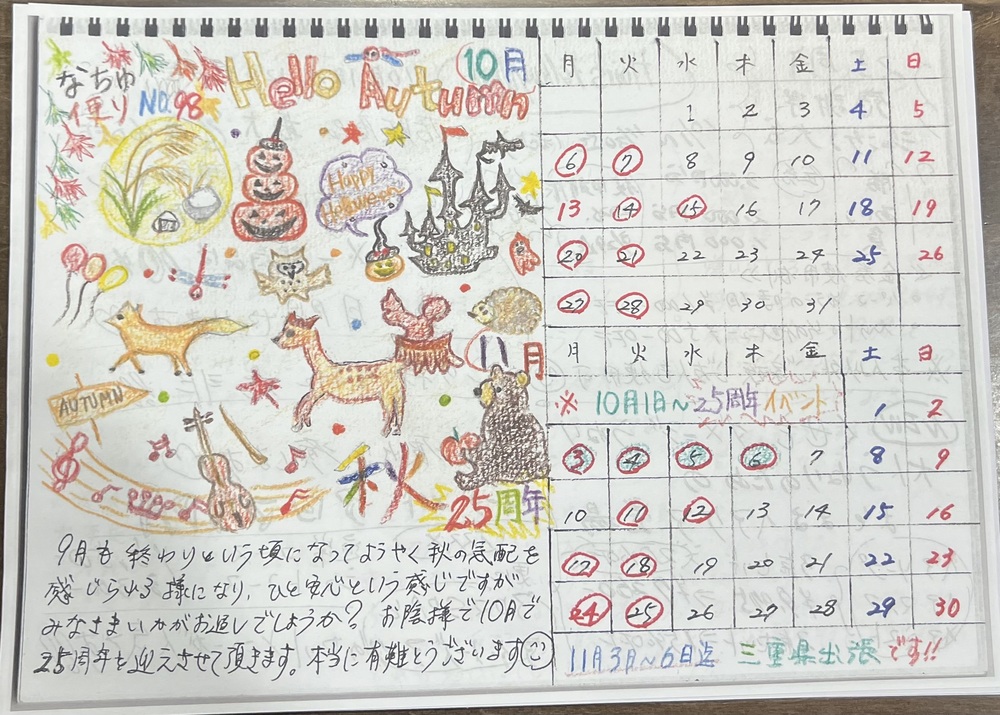 なちゅ
便り NO.98
Hello Autumn
10月
Happy
Halloween
AUTUMN
11月
秋
25周年
9月も終わりという頃になってようやく秋の気配を
感じられる様になり、ひと安心という感じですが
みなさまいかがお過しでしょうか? お陰様で10月で
25周年を迎えさせて頂きます。本当に有難とうございます
月 火 水 木 金 土 日
1 2 3 4 5
6 7 8 9 10 11 12
13 14 15 16 17 18 19
20 21 22 23 24 25 26
27 28 29 30 31
月 火 水 木 金 土 日
※ 10月1日~25周年イベント 1 2
3 4 5 6 7 8 9
10 11 12 13 14 15 16
17 18 19 20 21 22 23
24 25 26 27 28 29 30
11月3日~6日迄 三重県出張です!!